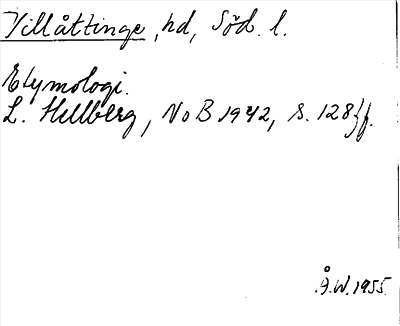 Villåttinge, hd, Söd. l.
Etymologi.
L. Hellberg, NoB 1942, s. 128 ff.
Å.W. 1955.